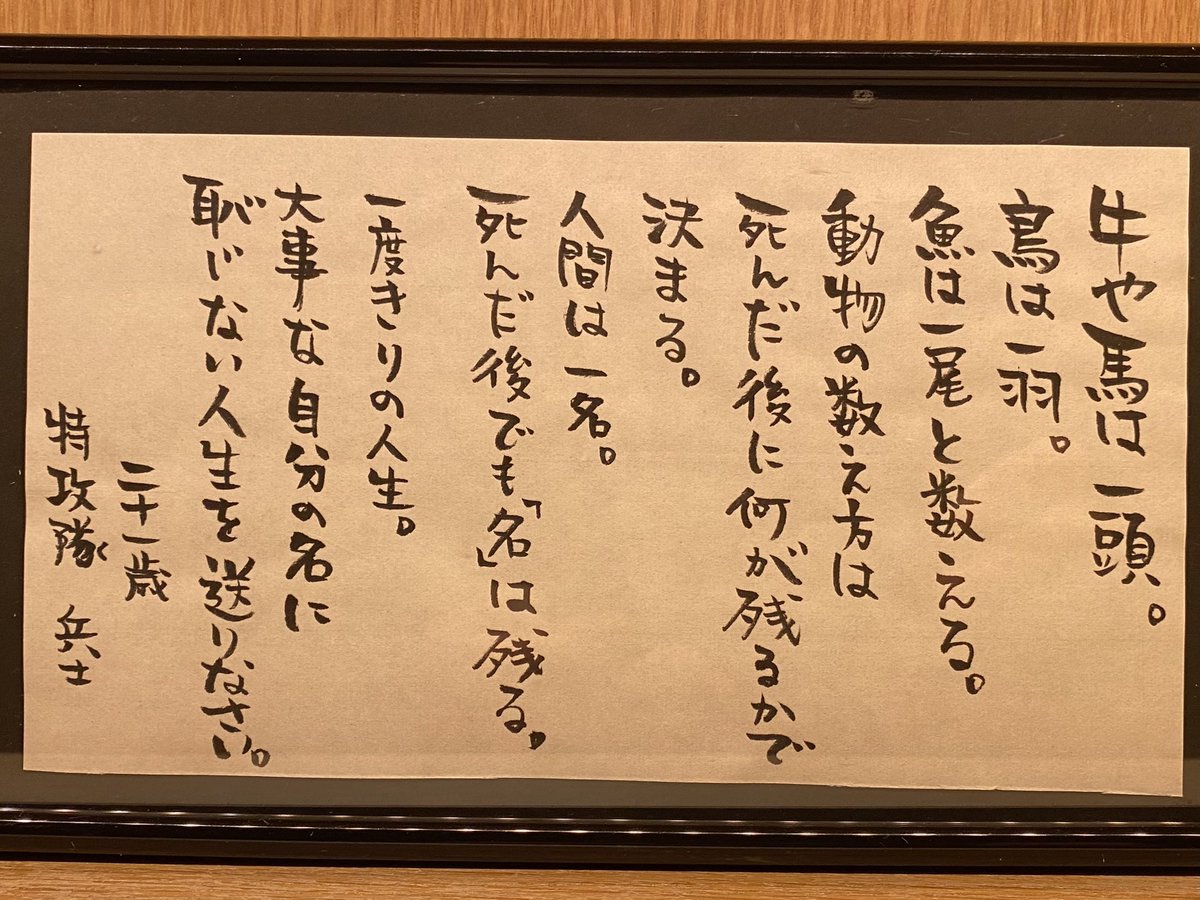 牛や馬は一頭。
鳥は一羽。
魚は一尾と数える。
動物の数え方は
死んだ後に何が残るかで
決まる。
人間は一名。
死んだ後でも「名」は残る。
一度きりの人生。
大事な自分の名に
恥じない人生を送りなさい。
二十一歳
特攻隊 兵士